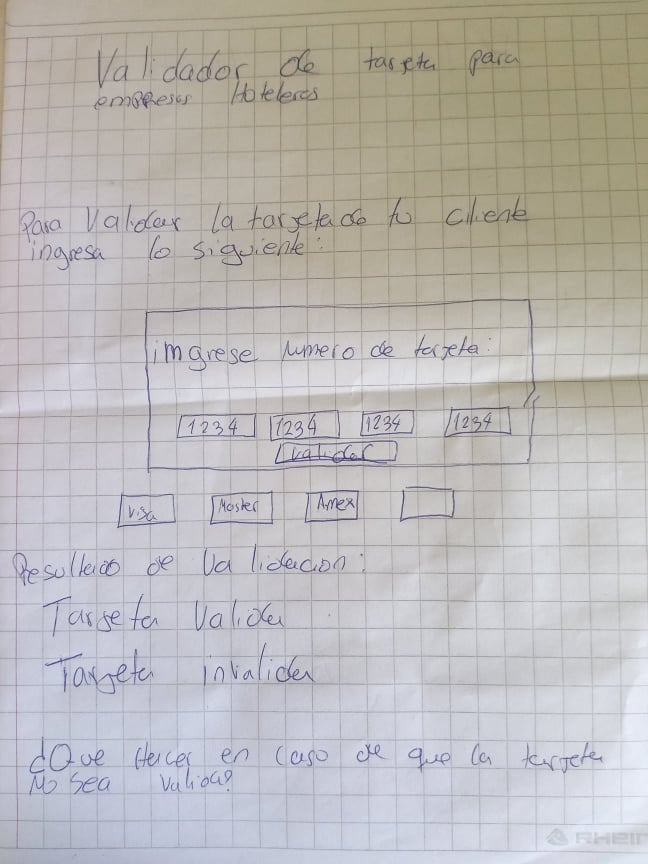 Validador de tarjeta para
empresas Hoteleras
Para Validar la tarjeta de tu cliente
ingresa lo siguiente:
imgrese numero de tarjeta:
1234 1234 1234 1234
Validar
Visa Master Amex
Resultado de Validacion:
Targeta Valida
Targeta invalida
¿Que Hacer en caso de que la tarjeta
No sea valida?
RHEIN